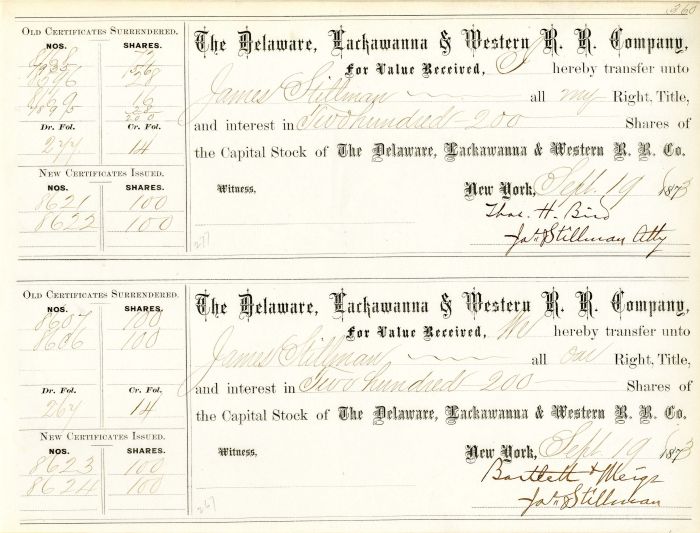 360
Old Certificates Surrendered.
NOS. SHARES.
200
Dr. Fol. Cr. Fol.
277 14
New Certificates Issued.
NOS. SHARES.
8621 100
8622 100
The Delaware, Lackawanna & Western R. R. Company,
For Value Received, I hereby transfer unto
James Stillman all my Right, Title,
and interest in Two hundred 200 Shares of
the Capital Stock of The Delaware, Lackawanna & Western R. R. Co.
Witness, New York, Sept. 19 1873
Thos. H. Bird
Jas Stillman Atty
277
Old Certificates Surrendered.
NOS. SHARES.
8607 100
8606 100
Dr. Fol. Cr. Fol.
267 14
New Certificates Issued.
NOS. SHARES.
8623 100
8624 100
The Delaware, Lackawanna & Western R. R. Company,
For Value Received, We hereby transfer unto
James Stillman all our Right, Title,
and interest in Two hundred 200 Shares of
the Capital Stock of The Delaware, Lackawanna & Western R. R. Co.
Witness, New York, Sept 19 1873
Bartlett & Meigs
Jas Stillman
267